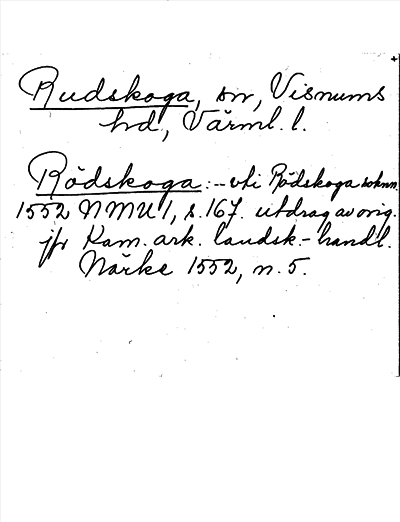 Rudskoga, sn, Visnums
hd, Värml. l.
Rödskoga: -- vti Rödskoga soknn
1552 NMU 1, s. 167. utdrag av orig.
jfr Kam. ark. landsk.-handl.
Närke 1552, n. 5.